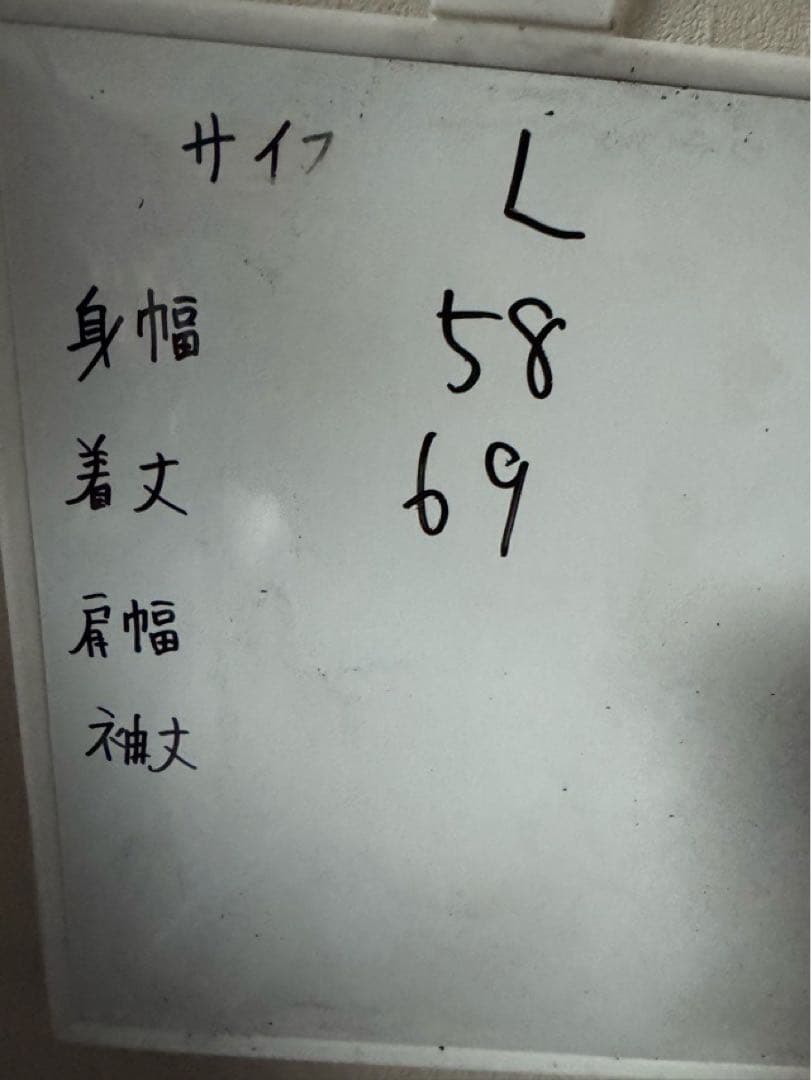 サイフ L
身幅 58
着丈 69
肩幅
袖丈